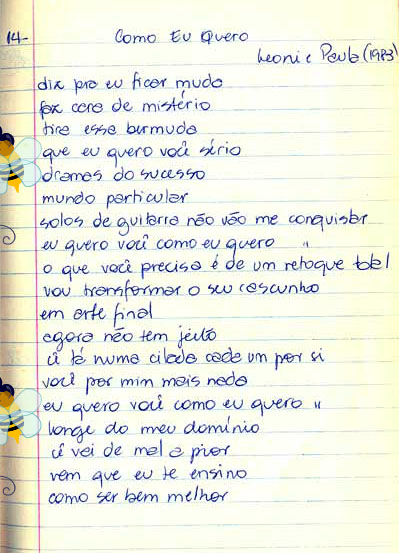 14- Como Eu Quero
Leoni e Paula (1983)
diz pra eu ficar muda
faz cara de mistério
tira essa bermuda
que eu quero você sério
dramas do sucesso
mundo particular
solos de guitarra não vão me conquistar
eu quero você como eu quero "
o que você precisa é de um retoque total
vou transformar o seu rascunho
em arte final
agora não tem jeito
cê tá numa cilada cada um por si
você por mim mais nada
eu quero você como eu quero "
longe do meu domínio
cê vai de mal a pior
vem que eu te ensino
como ser bem melhor